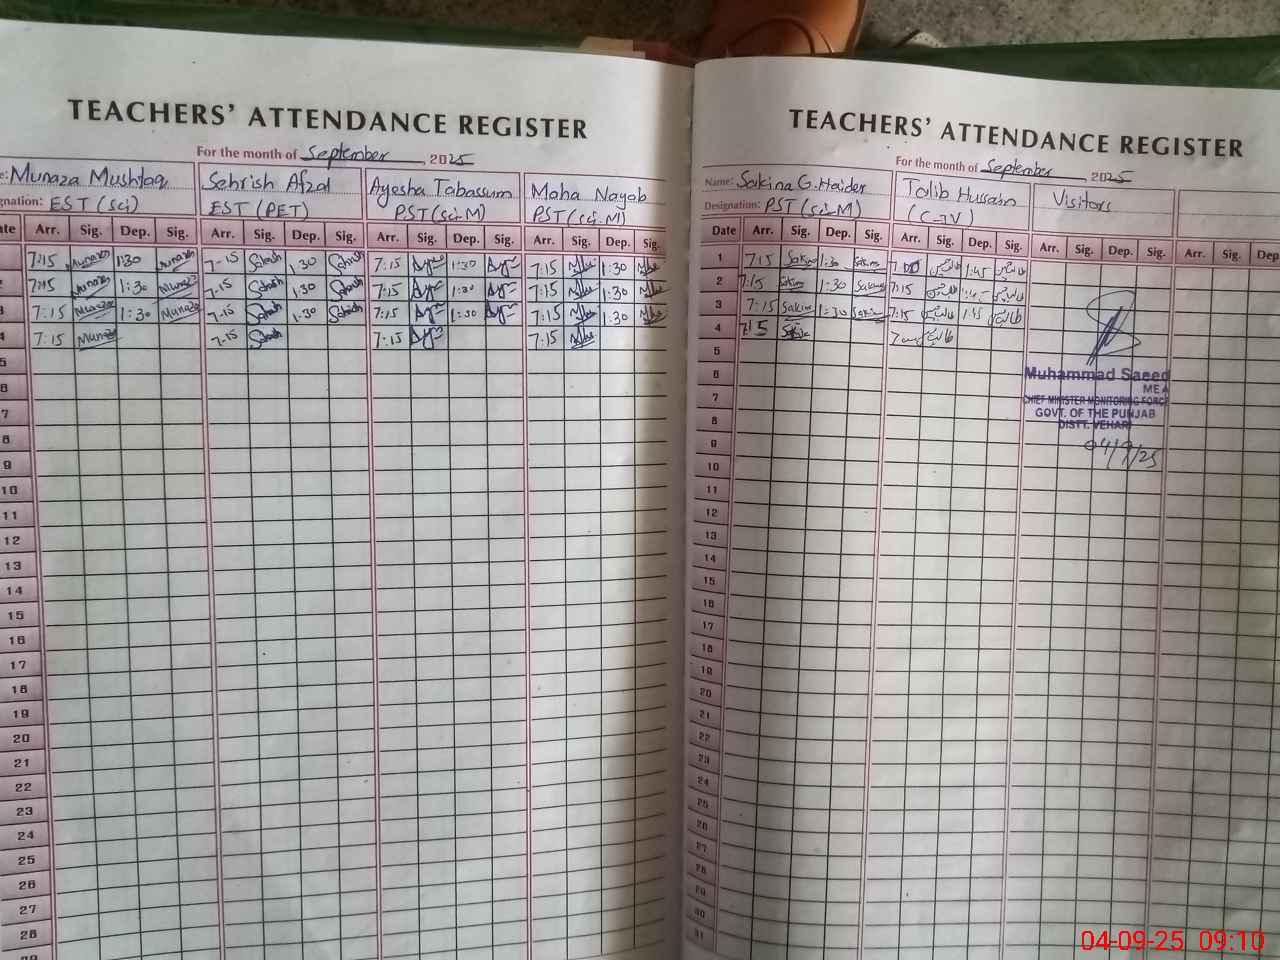 TEACHERS' ATTENDANCE REGISTER
For the month of September, 2025
e: Munaza Mushtaq Sehrish Afzal Ayesha Tabassum Maha Nayab
gnation: EST (Sci) EST (PET) PST (Sci-M) PST (Sci-M)
ate Arr. Sig. Dep. Sig. Arr. Sig. Dep. Sig. Arr. Sig. Dep. Sig. Arr. Sig. Dep. Sig.
7:15 Munaza 1:30 Munaza 7-15 Sehrish 1:30 Sehrish 7:15 1:30 7:15 1:30
7:15 Munaza 1:30 Munaza 7-15 Sehrish 1:30 Sehrish 7:15 1:30 7:15 1:30
3 7:15 Munaza 1:30 Munaza 7-15 Sehrish 1:30 Sehrish 7:15 1:30 7:15 1:30
4 7:15 Munaza 7-15 Sehrish 7:15 7:15
5
6
7
8
9
10
11
12
13
14
15
16
17
18
19
20
21
22
23
24
25
26
27
28
29
TEACHERS' ATTENDANCE REGISTER
For the month of September, 2025
Name: Sakina G. Haider Talib Hussain Visitors
Designation: PST (Sci-M) (C-IV)
Date Arr. Sig. Dep. Sig. Arr. Sig. Dep. Sig. Arr. Sig. Dep. Sig. Arr. Sig. Dep
1 7:15 Sakina 1:30 Sakina 1:45
2 7:15 Sakina 1:30 Sakina 7:15
3 7:15 Sakina 1:30 Sakina 7:15
4 7:15 Sakina
5
6
7
8
9
10
11
12
13
14
15
16
17
18
19
20
21
22
23
24
25
26
27
28
29
30
31
Muhammad Saeed
MEA
CHIEF MINISTER MONITORING FORCE
GOVT. OF THE PUNJAB
DISTT. VEHARI
04/9/25
04-09-25 09:10